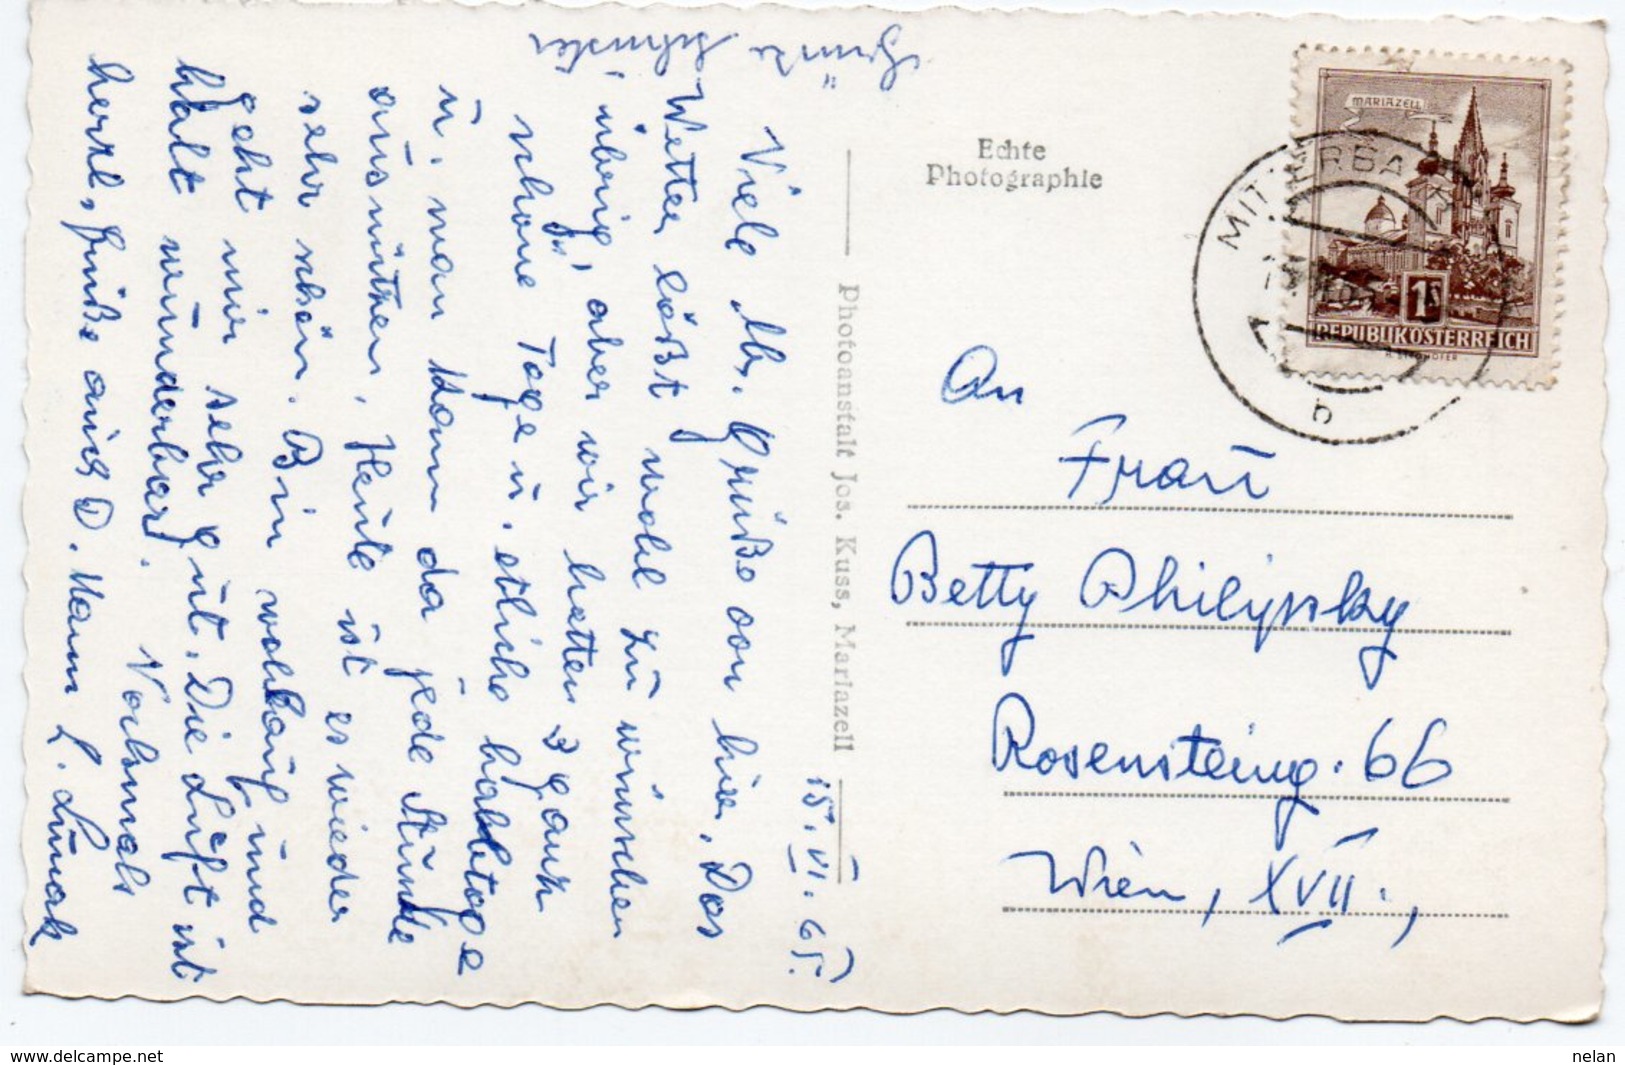 15. VI. 65.
Viele lb. Grüße von hier. Das
Wetter läßt wohl zu wünschen
übrig, aber wir hatten 3 ganz
schöne Tage u. etliche halbtage
u. man kann da jede Stunde
ausnützen. Heute ist es wieder
sehr schön. Bin wohlauf und
geht mir sehr gut. Die Luft ist
halt wunderbar. Nochmals
herzl. Grüße auch D. Mann L.
Echte
Photographie
Photoanstalt Jos. Kuss, Mariazell
MARIAZELL
1 S
REPUBLIK ÖSTERREICH
MITTERBACH
b
An
Frau
Betty Philipsky
Rosensteing. 66
Wien, XVII.,
delcampe.net
nelan